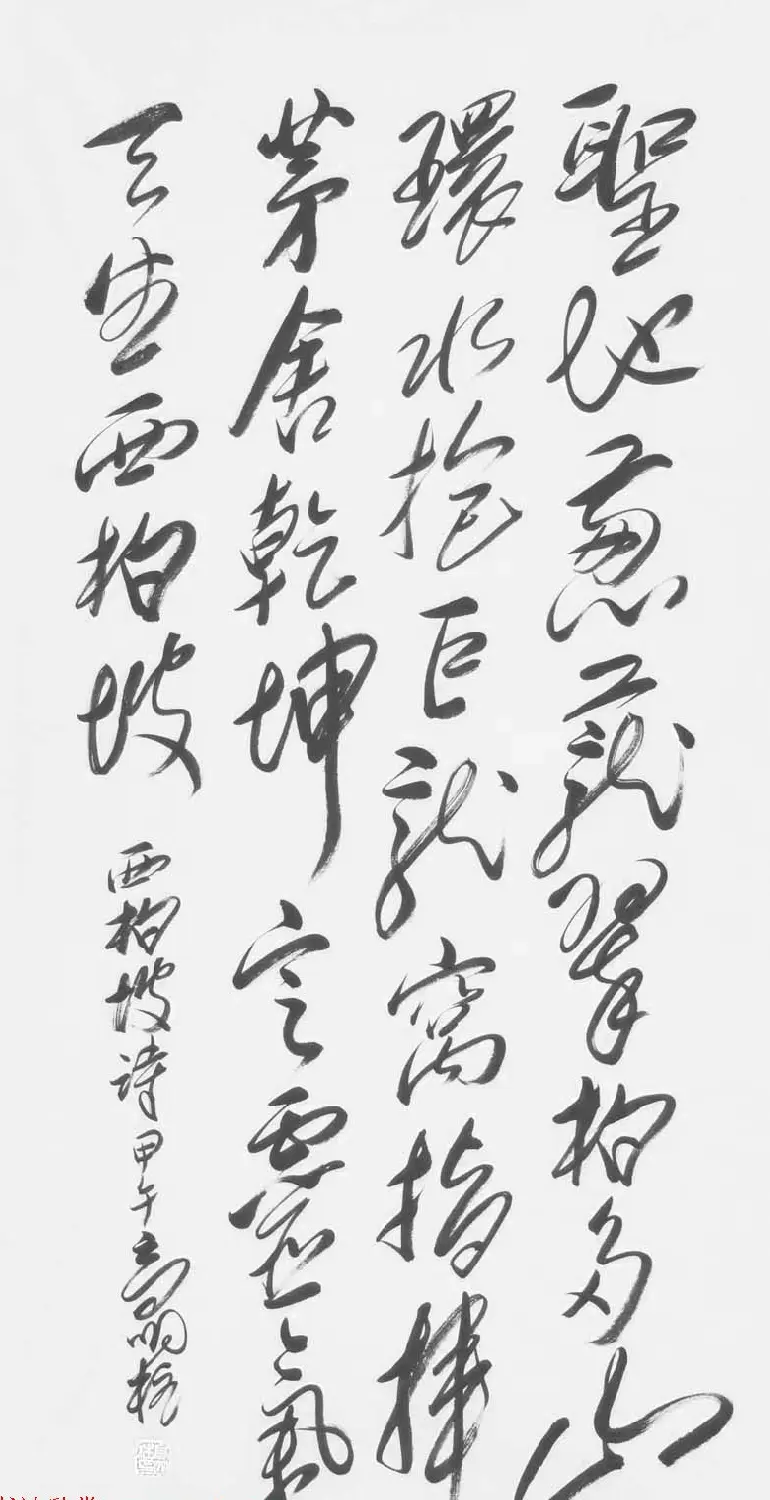 聖地蔥蘢翠柏多山
環水抱巨龍窩指揮
茅舍乾坤定靈氣
天生西柏坡
西柏坡詩甲午高明栓